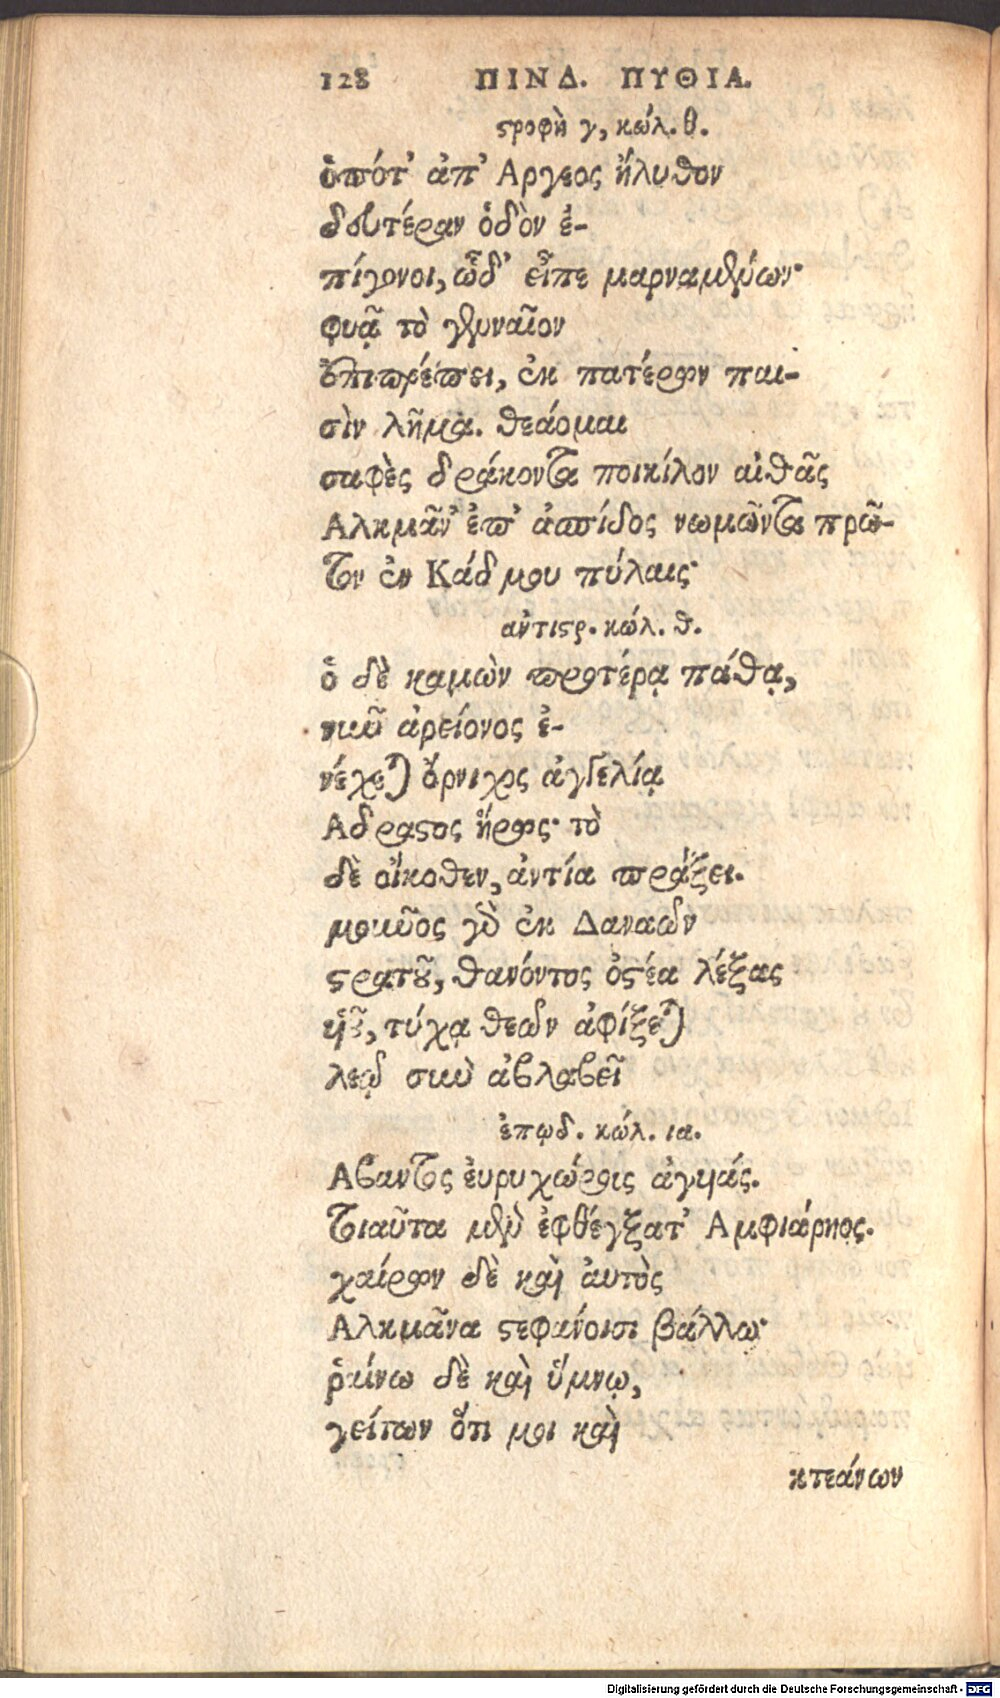 128 ΠΙΝΔ. ΠΥΘΙΑ.
στροφὴ γ, κώλ. θ.
ὁπότ' ἀπ' Αργεος ἤλυθον
δευτέραν ὁδὸν ἐ-
πίγονοι, ὧδ' εἶπε μαρναμένων·
φυᾷ τὸ γενναῖον
ἐπιπρέπει, ἐκ πατέρων παι-
σὶν λῆμα. θεάομαι
σαφὲς δράκοντα ποικίλον αἰθᾶς
Αλκμᾶν' ἐπ' ἀσπίδος νωμῶντα πρῶ-
τον ἐν Κάδμου πύλαις·
ἀντιστρ. κώλ. θ.
ὁ δὲ καμὼν προτέρᾳ πάθᾳ,
νῦν ἀρείονος ἐ-
νέχεται ὄρνιχος ἀγγελίᾳ
Αδραστος ἥρως· τὸ
δὲ οἴκοθεν, ἀντία πράξει.
μοῦνος γὰρ ἐκ Δαναῶν
στρατοῦ, θανόντος ὀστέα λέξας
υἱοῦ, τύχᾳ θεῶν ἀφίξεται
λεῷ σὺν ἀβλαβεῖ
ἐπῳδ. κώλ. ια.
Αβαντος ἐυρυχώροις ἀγυιάς.
τοιαῦτα μὲν ἐφθέγξατ' Αμφιάρηος.
χαίρων δὲ καὶ ἀυτὸς
Αλκμᾶνα στεφάνοισι βάλλω·
ῥαίνω δὲ καὶ ὕμνῳ,
γείτων ὅτι μοι καὶ
κτεάνων
Digitalisierung gefördert durch die Deutsche Forschungsgemeinschaft - DFG